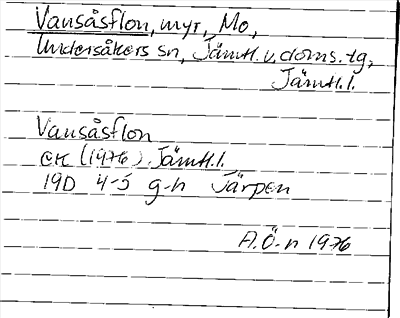 Vansåsflon, myr, Mo,
Undersåkers sn, Jämtl. v. doms. tg,
Jämtl. l.
Vansåsflon
EK (1976) Jämtl. l.
19D 4-5 g-h Järpen
A.Ö-n 1976